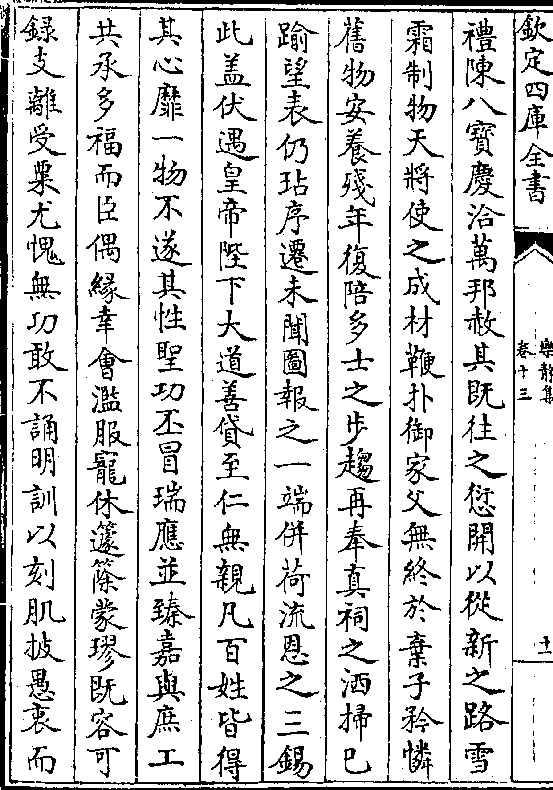 欽定四庫全書
樂靜集
卷十三
十一
禮陳八寳慶洽萬邦赦其既往之愆開以從新之路雪
霜制物天將使之成材鞭扑御家父無終於棄子矜憐
舊物安養殘年復陪多士之步趨再奉真祠之洒掃已
踰望表仍玷序遷未聞圖報之一端併荷流恩之三錫
此盖伏遇皇帝陛下大道善貸至仁無親凡百姓皆得
其心靡一物不遂其性聖功丕冒瑞應並臻嘉與庶工
共承多福而臣偶縁幸會濫服寵休籧篨蒙璆既容可
録支離受粟尤愧無功敢不誦明訓以刻肌披愚衷而